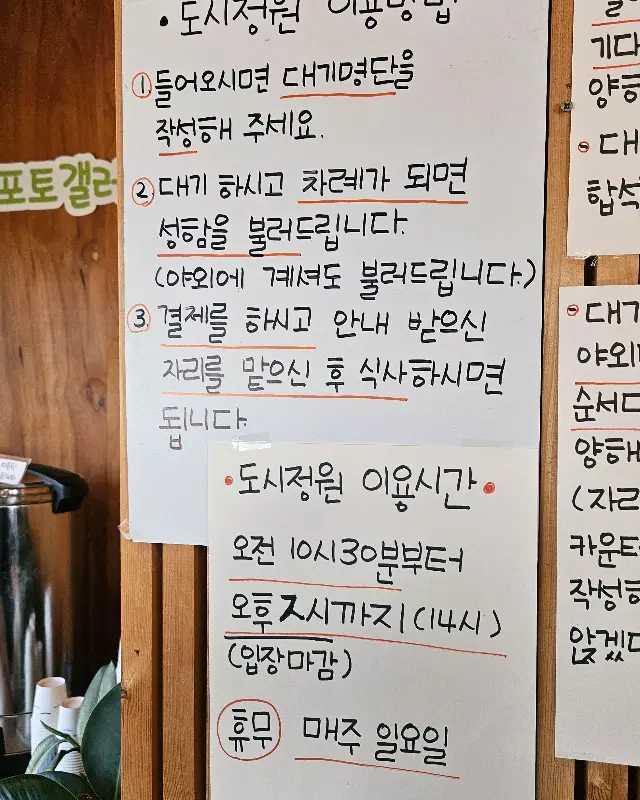 • 도시정원 이용방법
① 들어오시면 대기명단을
작성해 주세요.
② 대기 하시고 차례가 되면
성함을 불러드립니다.
(야외에 계셔도 불러드립니다.)
③ 결제를 하시고 안내 받으신
자리를 맡으신 후 식사하시면
됩니다.
• 도시정원 이용시간 •
오전 10시30분부터
오후 2시까지 (14시)
(입장마감)
휴무 매주 일요일
포토갤러
기다
양해
대
합석
대기
야외
순서대
양해
(자리
카운터
작성하
않겠다